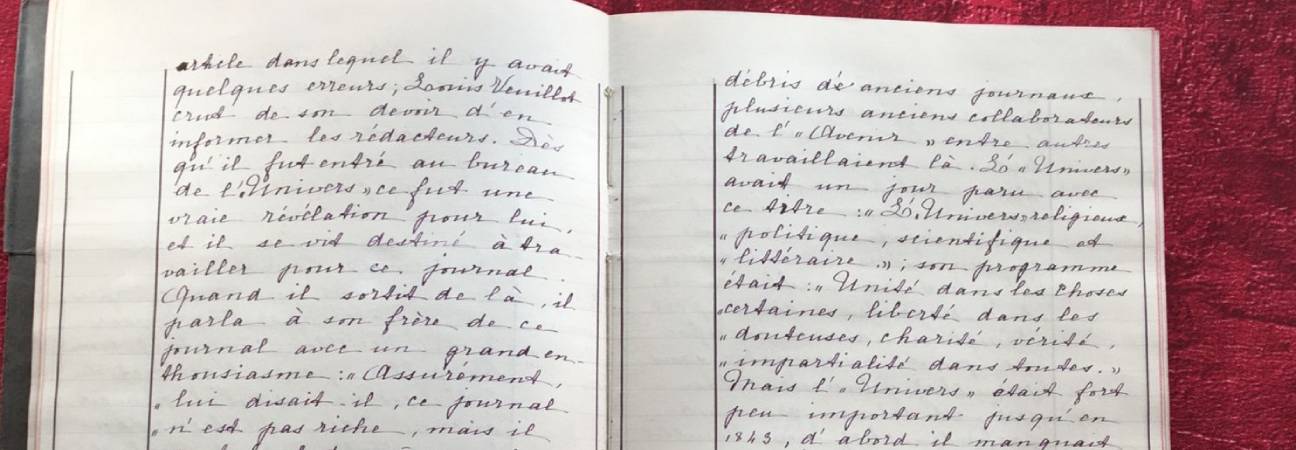 article dans lequel il y avait
quelques erreurs ; Louis Veuillot
crut de son devoir d'en
informer les rédacteurs. Dès
qu'il fut entré au bureau
de l'"Univers" ce fut une
vraie révélation pour lui,
et il se vit destiné à tra-
vailler pour ce journal.
Quand il sortit de là, il
parla à son frère de ce
journal avec un grand en-
thousiasme : "Assurément,
" lui disait-il, ce journal
" n'est pas riche, mais il
débris de anciens journaux,
plusieurs anciens collaborateurs
de l'"Avenir" entre autres
travaillaient là. L'"Univers"
avait un jour paru avec
ce titre : "L'Univers" religieux,
" politique, scientifique et
" littéraire." ; son programme
était : "Unité dans les choses
" certaines, liberté dans les
" douteuses, charité, vérité,
" impartialité dans toutes."
Mais l'"Univers" était fort
peu important jusqu'en
1843, d'abord il manquait